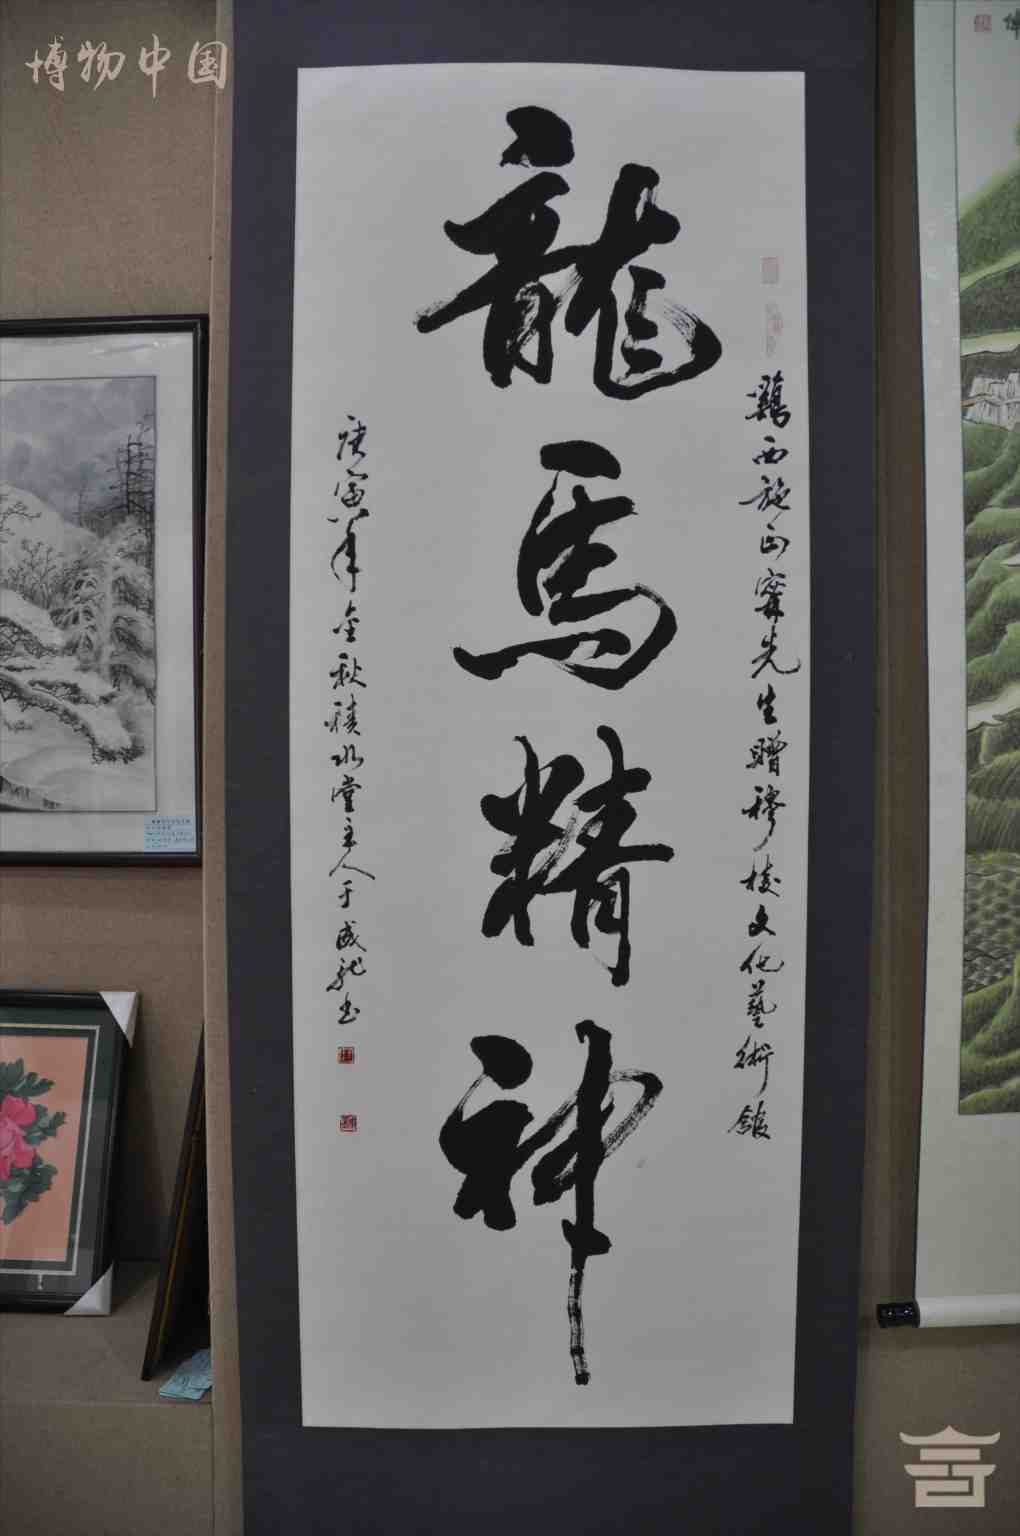 博物中国
龍馬精神
鷄西施正寗先生贈穆棱文化藝術館
庚寅年金秋積水堂主人于成龍书